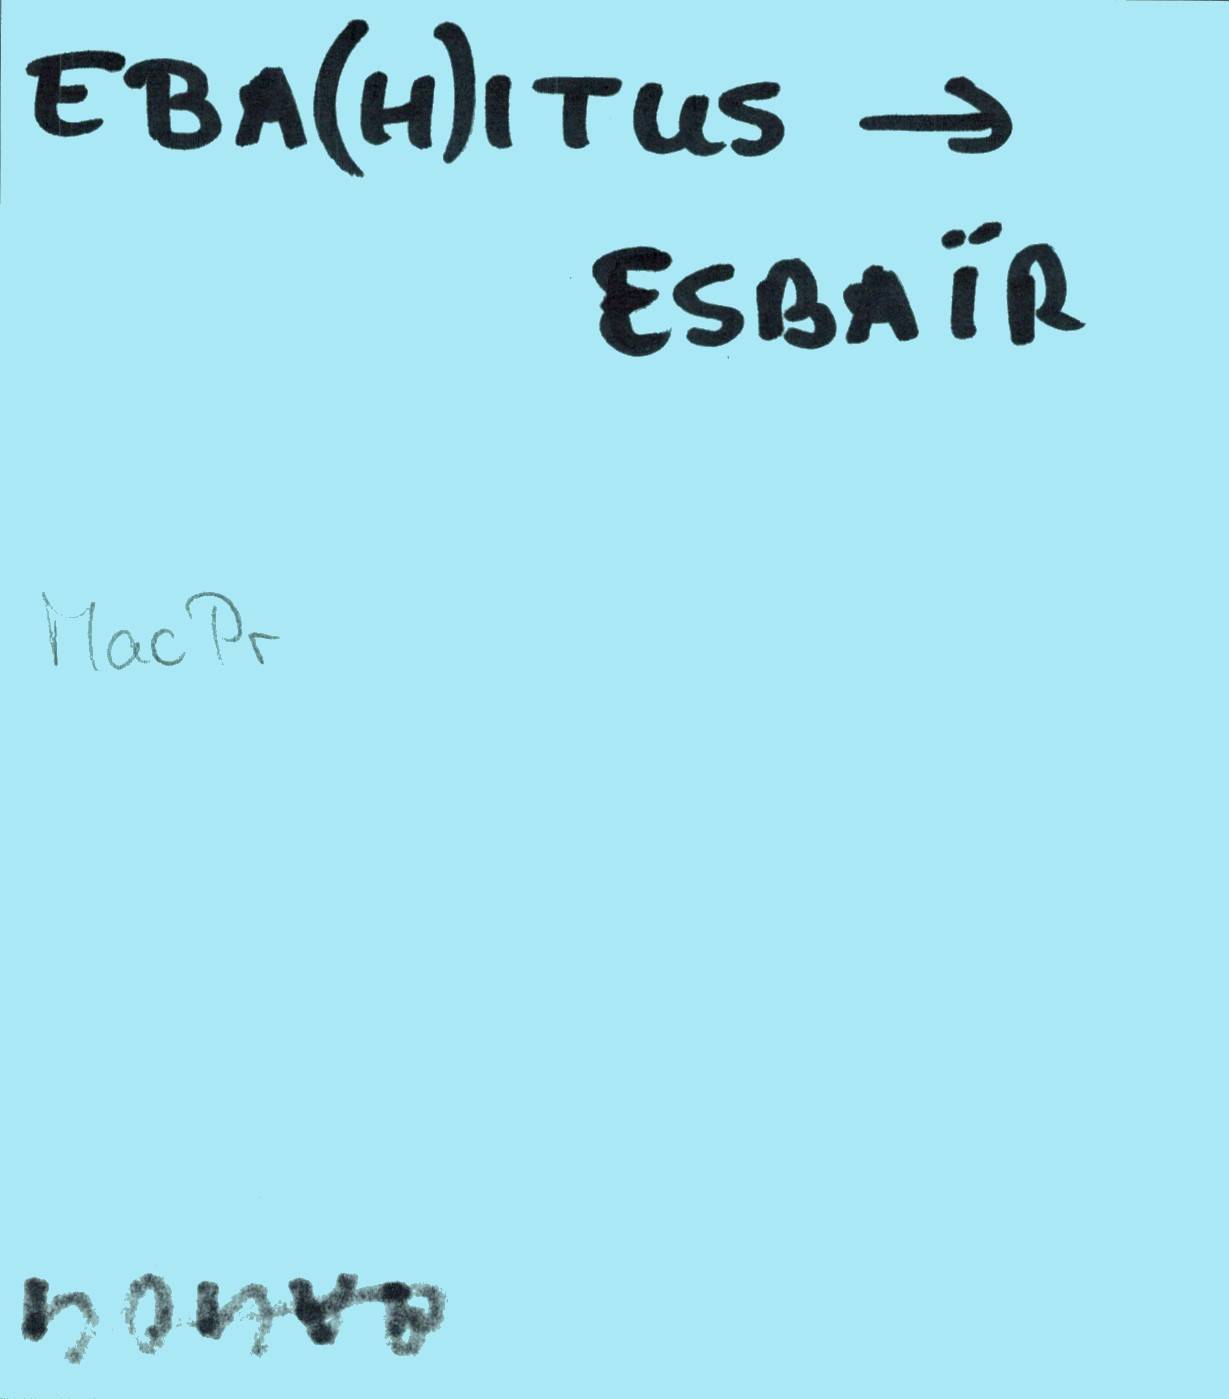 EBA(H)ITUS →
ESBAÏR
MacPr